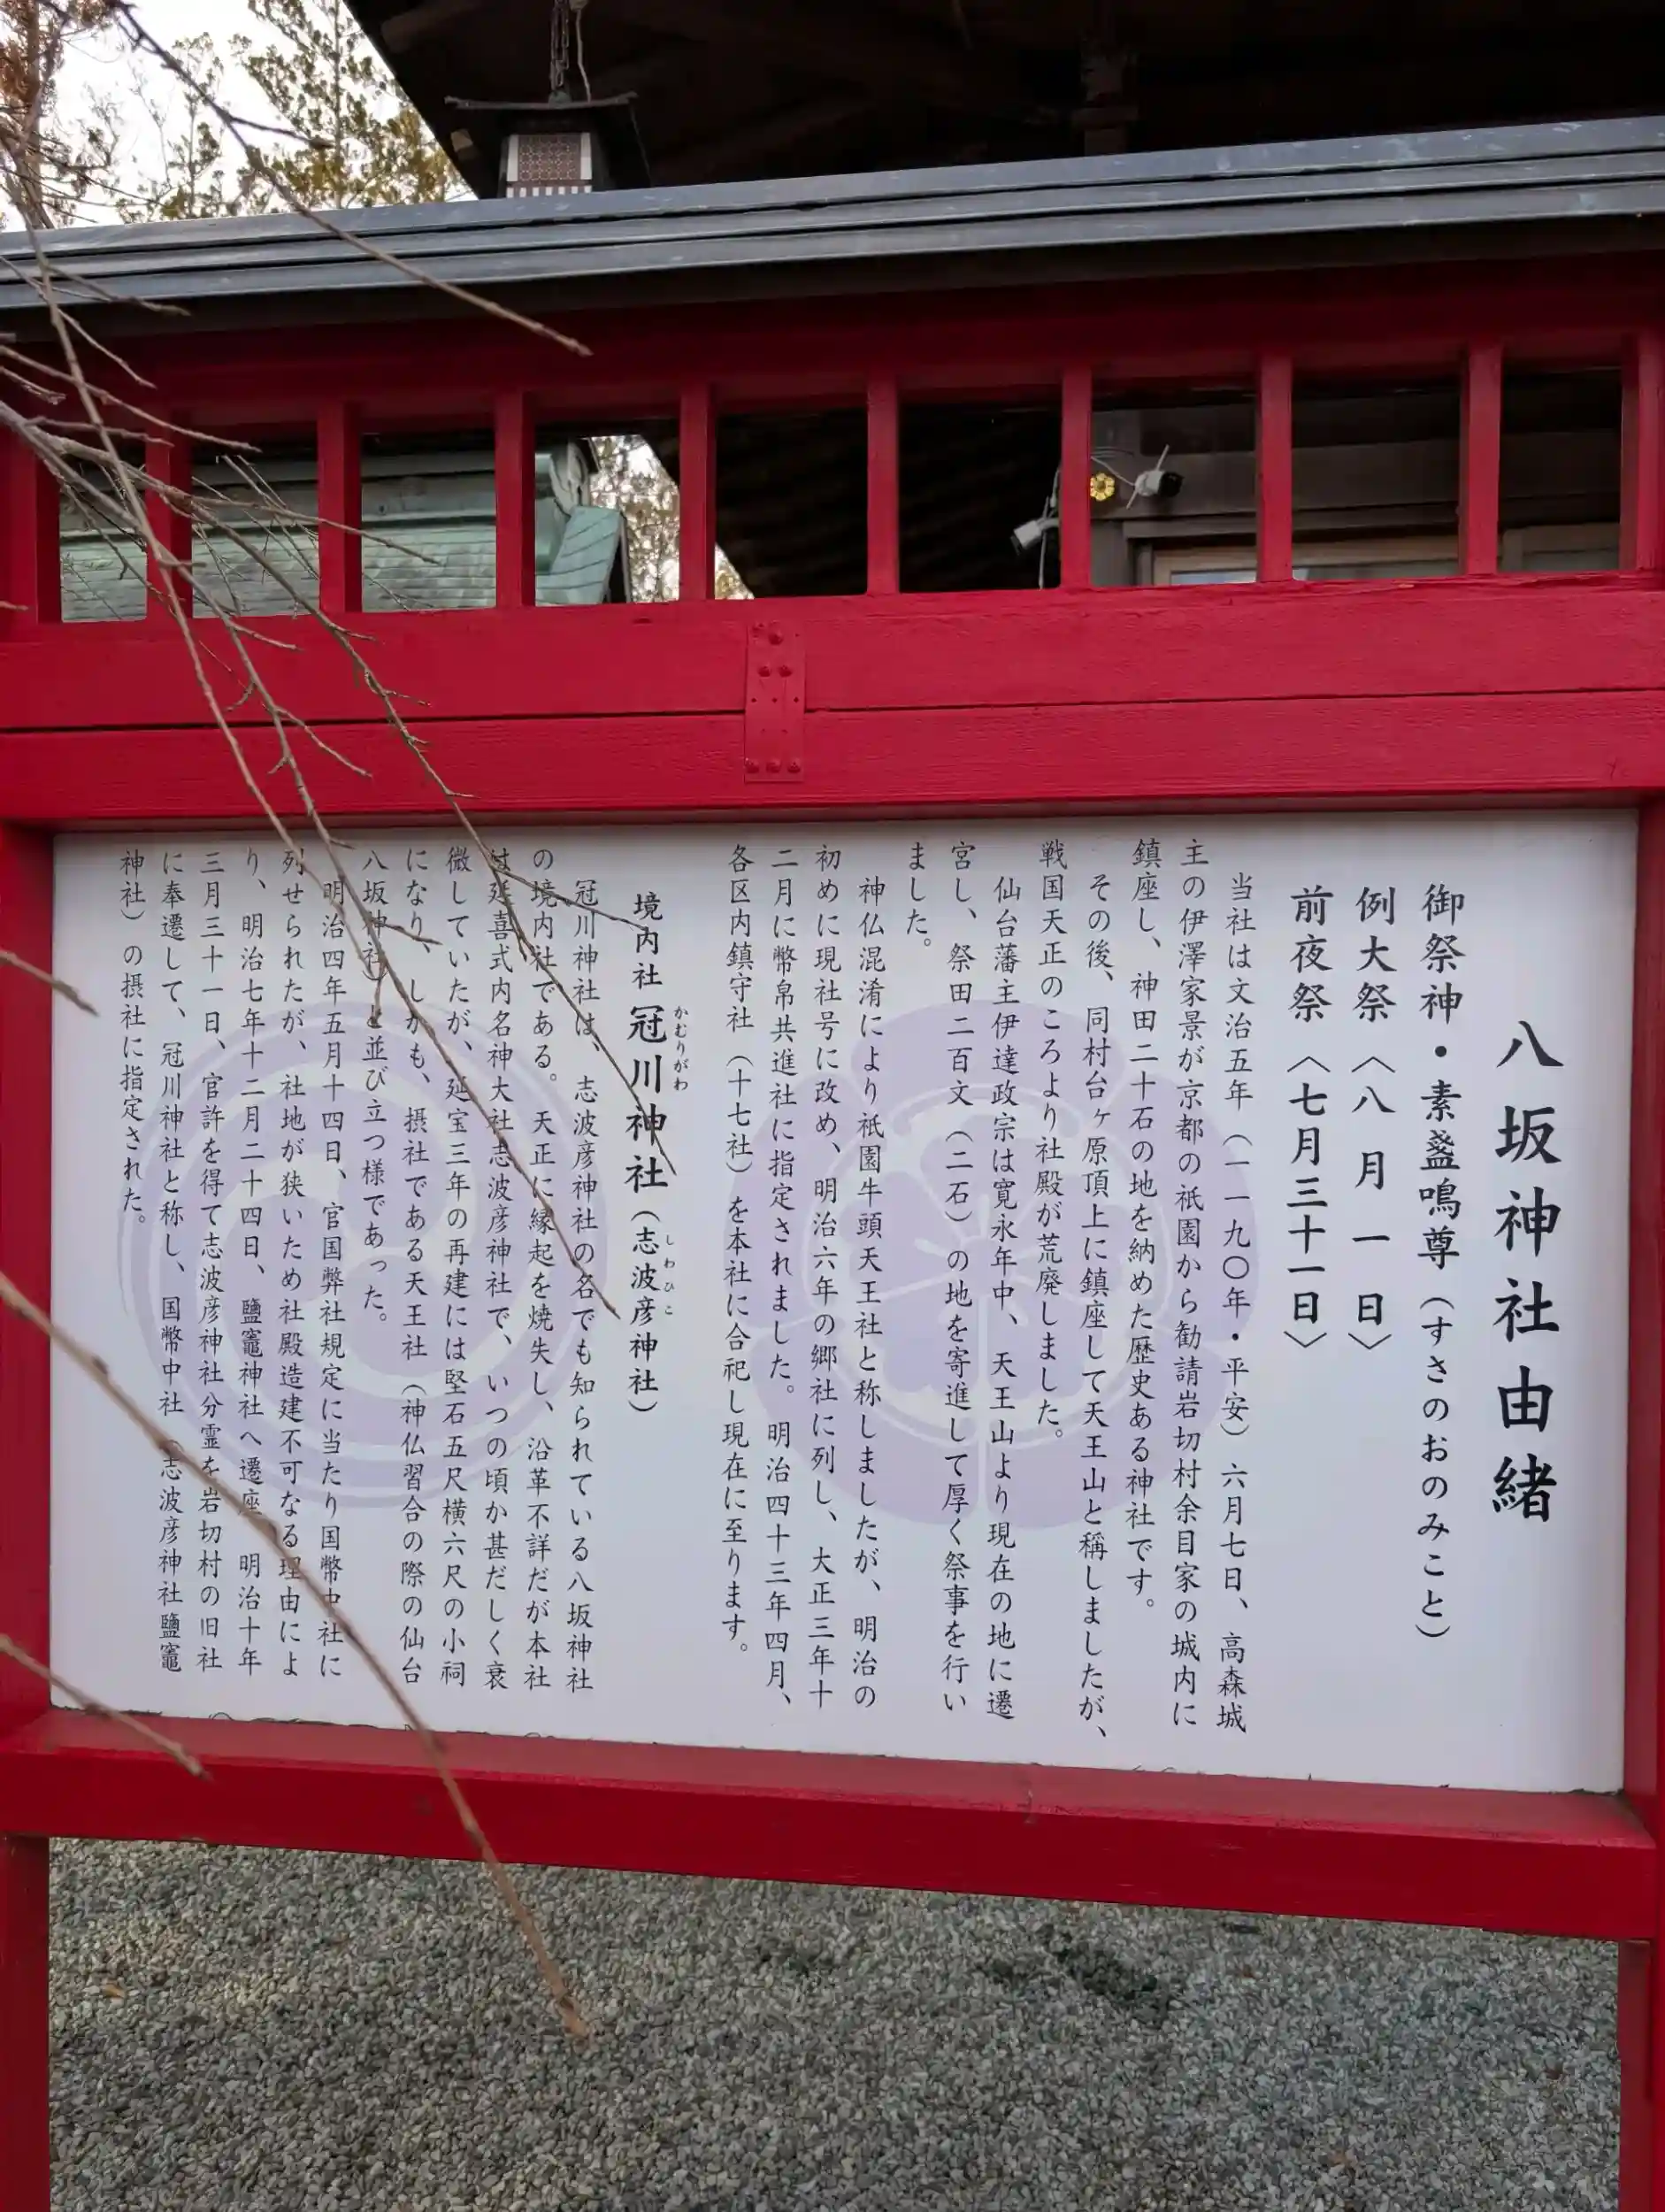 八坂神社由緒
御祭神・素盞鳴尊(すさのおのみこと)
例大祭〈八月一日〉
前夜祭〈七月三十一日〉
当社は文治五年(一一九〇年・平安)六月七日、高森城
主の伊澤家景が京都の祇園から勧請岩切村余目家の城内に
鎮座し、神田二十石の地を納めた歴史ある神社です。
その後、同村台ヶ原頂上に鎮座して天王山と稱しましたが、
戦国天正のころより社殿が荒廃しました。
仙台藩主伊達政宗は寛永年中、天王山より現在の地に遷
宮し、祭田二百文(二石)の地を寄進して厚く祭事を行い
ました。
神仏混淆により祇園牛頭天王社と称しましたが、明治の
初めに現社号に改め、明治六年の郷社に列し、大正三年十
二月に幣帛共進社に指定されました。明治四十三年四月、
各区内鎮守社(十七社)を本社に合祀し現在に至ります。
境内社 冠川神社(志波彦神社)
かむりがわ
しわひこ
冠川神社は、志波彦神社の名でも知られている八坂神社
の境内社である。天正に縁起を焼失し、沿革不詳だが本社
は延喜式内名神大社志波彦神社で、いつの頃か甚だしく衰
微していたが、延宝三年の再建には堅石五尺横六尺の小祠
になり、しかも、摂社である天王社(神仏習合の際の仙台
八坂神社)と並び立つ様であった。
明治四年五月十四日、官国弊社規定に当たり国幣中社に
列せられたが、社地が狭いため社殿造建不可なる理由によ
り、明治七年十二月二十四日、鹽竈神社へ遷座 明治十年
三月三十一日、官許を得て志波彦神社分霊を岩切村の旧社
に奉遷して、冠川神社と称し、国幣中社(志波彦神社鹽竈
神社)の摂社に指定された。